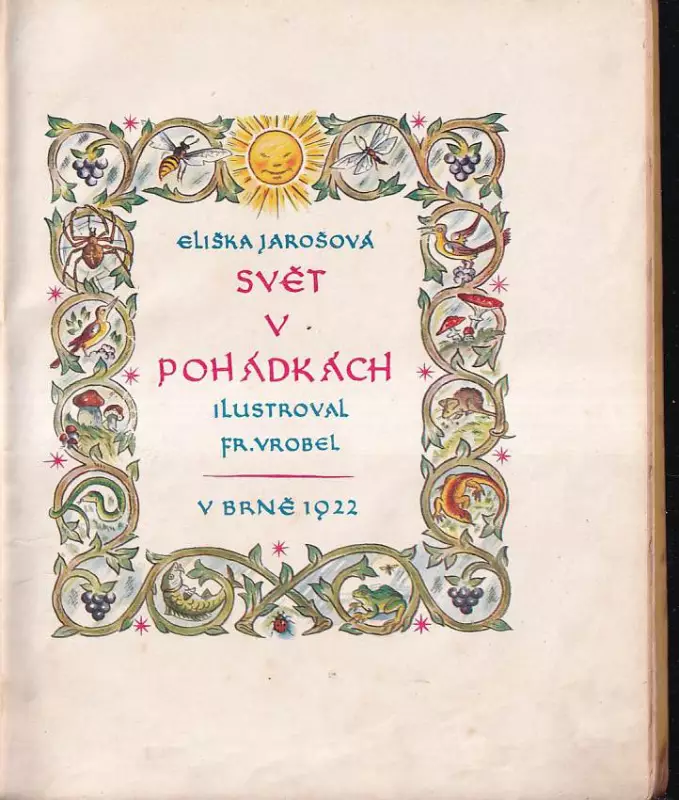 ELIŠKA JAROŠOVÁ
SVĚT
V
POHÁDKÁCH
ILUSTROVAL
FR. VROBEL
V BRNĚ 1922